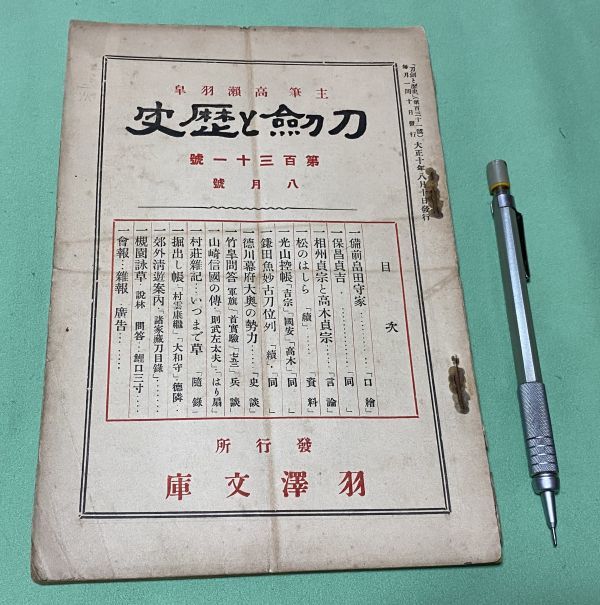 「刀劍と歴史」(第百三十一號)大正十年八月十日發行
毎月一回十日發行
主筆高瀬羽皐
刀劍と歴史
第百三十一號
八月號
目次
一備前畠田守家………「口繪」
一保昌貞吉………「同」
一相州貞宗と高木貞宗………「言論」
一松のはしら「續」………「資料」
一光山控帳「吉宗」「國安」「高木」「同」
鎌田魚妙古刀位列「續」「同」
一德川幕府大奥の勢力……「史談」
一竹皐問答「軍旗」「首實驗」「七五三」「兵談」
一山崎信國の傳「則武左太夫」「はり扇」
村莊雜記…いつまで草「隨錄」
一掘出し帳「村雲康繼」「大和守」「德隣」…
一郊外淸遊案內「諸家藏刀目錄」……
一槻園詠草…說林 問答…鯉口三寸……
一會報…雜報…廣告………
發行所
羽澤文庫